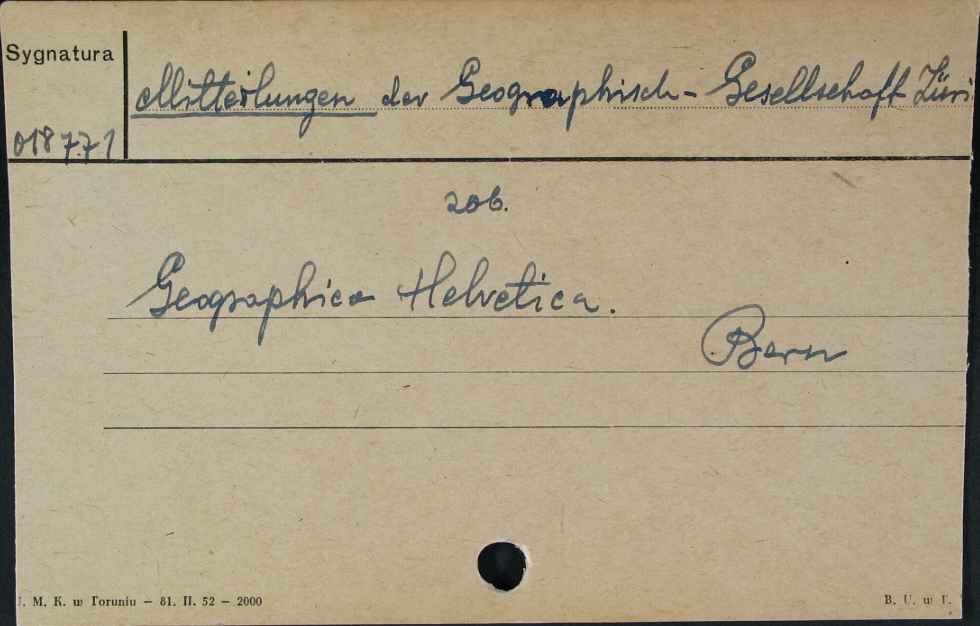 Sygnatura
Mitteilungen der Geographisch-Gesellschaft Züri
018771
zob.
Geographica Helvetica.
Bern
U. M. K. w Toruniu — 81. II. 52 — 2000
B. U. w T.